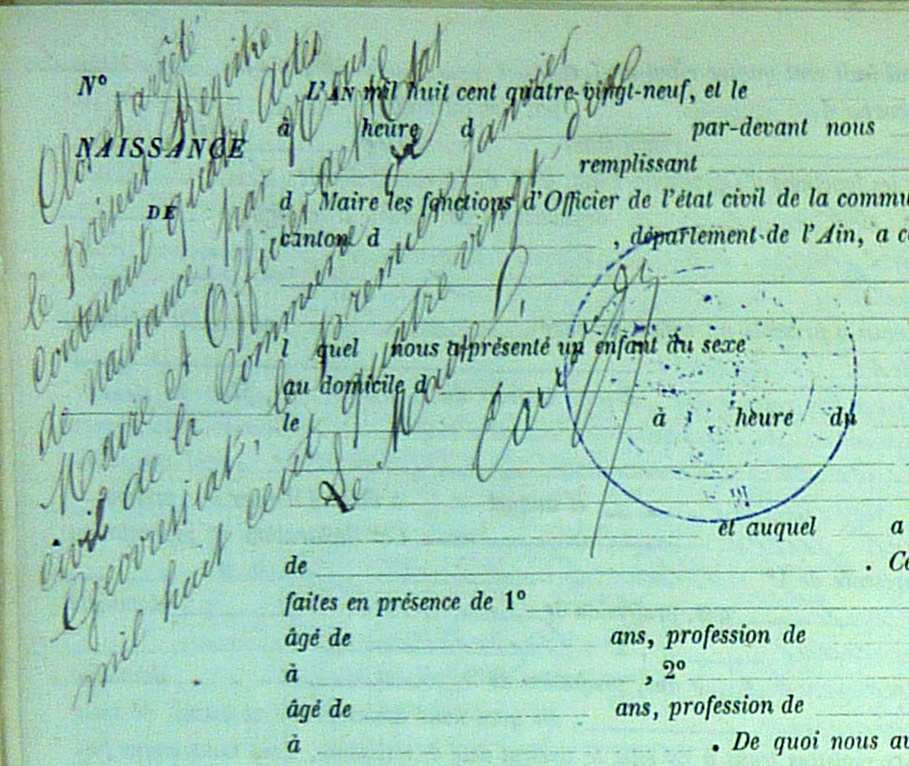 Clos et arrêté
le présent Registre
contenant quatre Actes
de naissance, par Nous
Maire et Officier de l'Etat
civil de la Commune de
Geovressiat, le premier Janvier
mil huit cent quatre vingt-dix
Le Maire,
Nº
NAISSANCE
DE
L'AN mil huit cent quatre-vingt-neuf, et le
à heure d par-devant nous
remplissant
d Maire les fonctions d'Officier de l'état civil de la commu
canton d , département de l'Ain, a c
l quel nous a présenté un enfant du sexe
au domicile d
le à heure du
et auquel a
de . Ce
faites en présence de 1º
âgé de ans, profession de
à , 2º
âgé de ans, profession de
à . De quoi nous av